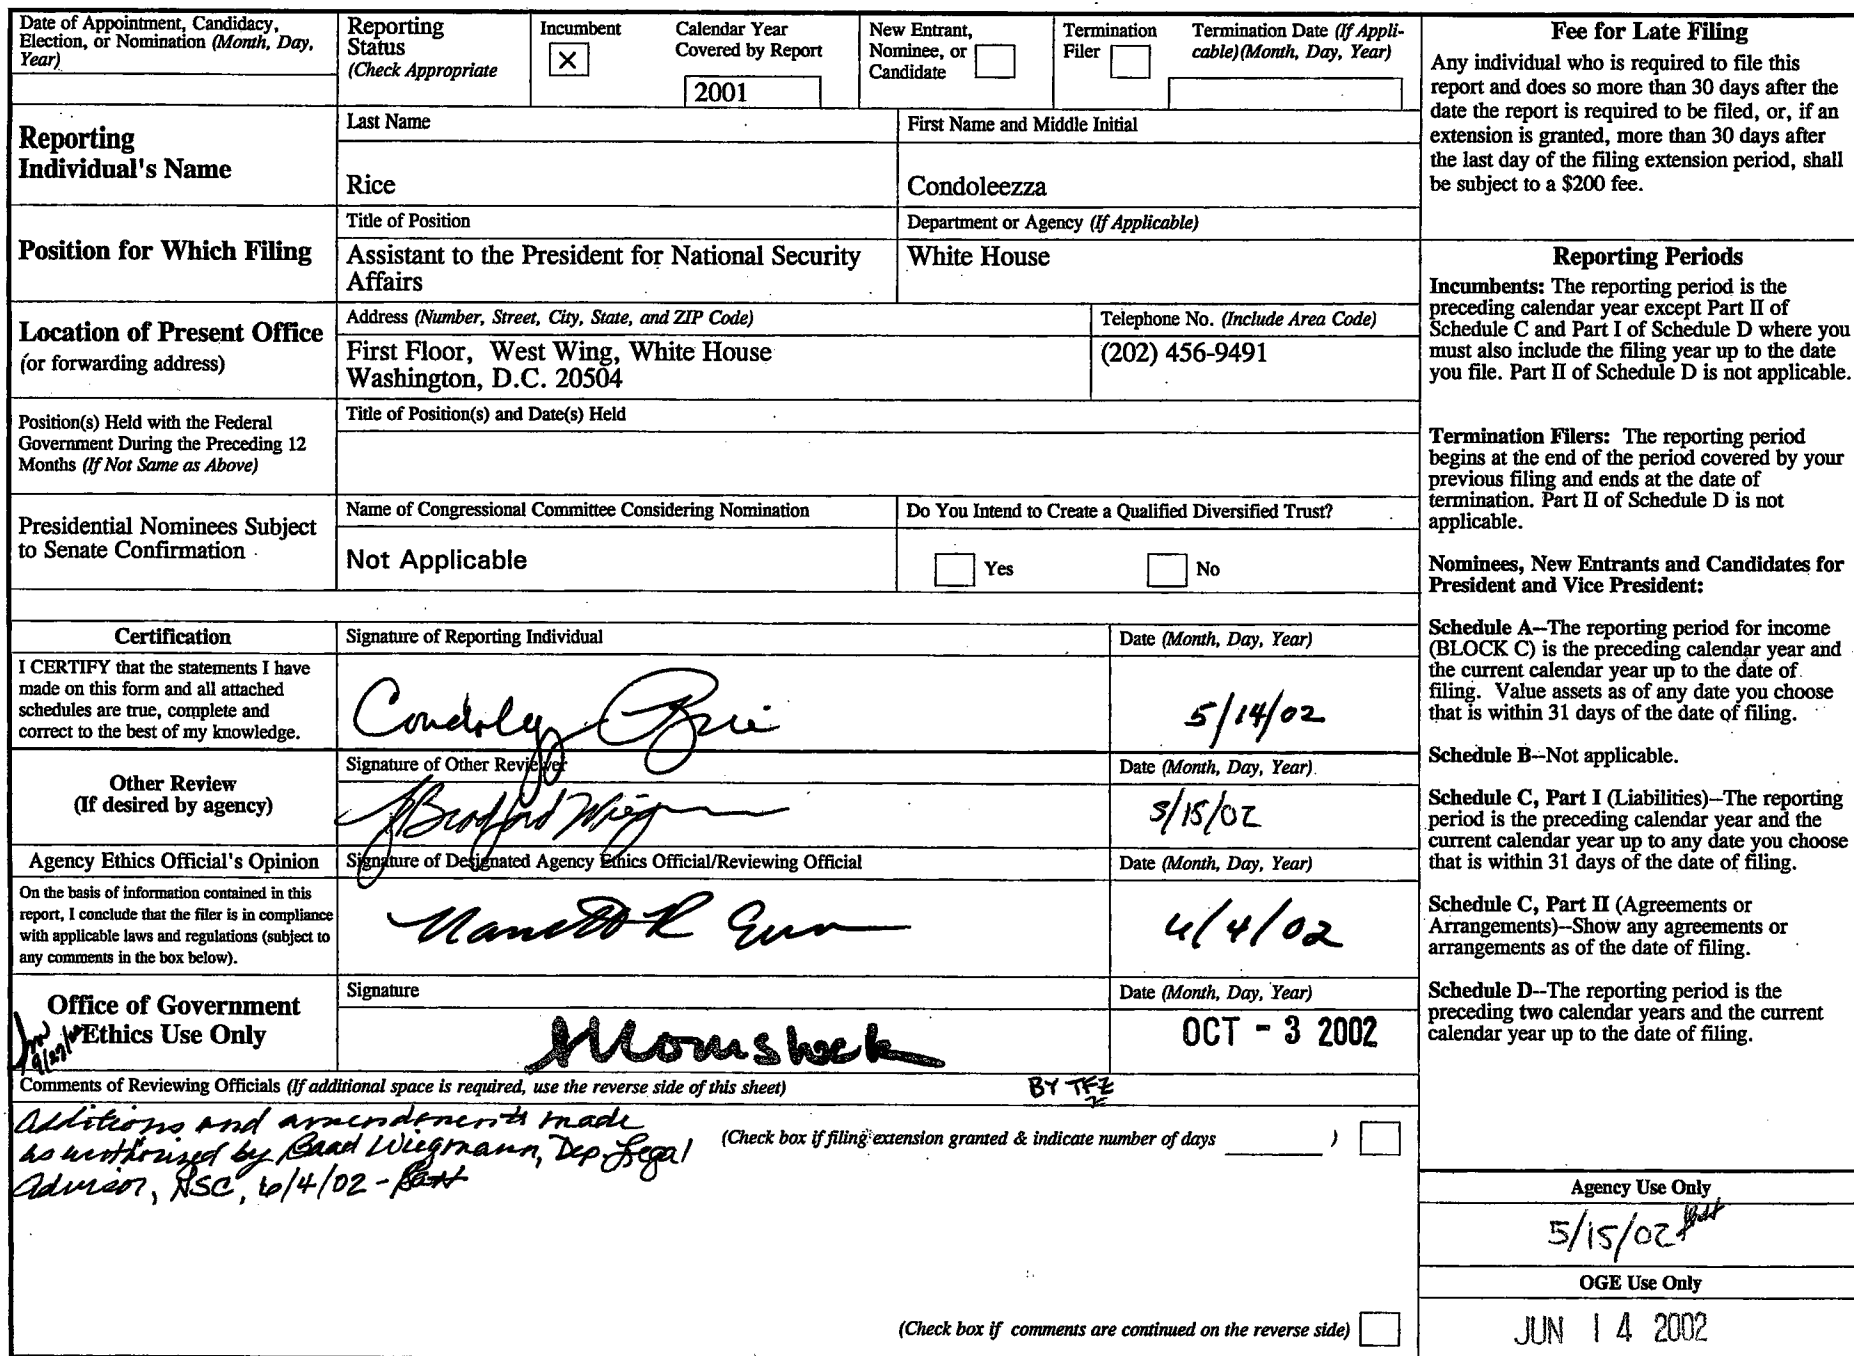 Date of Appointment, Candidacy,
Election, or Nomination (Month, Day,
Year)
Reporting
Status
(Check Appropriate
Incumbent
X
Calendar Year
Covered by Report
2001
New Entrant,
Nominee, or
Candidate
Termination
Filer
Termination Date (If Appli-
cable)(Month, Day, Year)
Reporting
Individual's Name
Last Name
Rice
First Name and Middle Initial
Condoleezza
Position for Which Filing
Title of Position
Assistant to the President for National Security
Affairs
Department or Agency (If Applicable)
White House
Location of Present Office
(or forwarding address)
Address (Number, Street, City, State, and ZIP Code)
First Floor, West Wing, White House
Washington, D.C. 20504
Telephone No. (Include Area Code)
(202) 456-9491
Position(s) Held with the Federal
Government During the Preceding 12
Months (If Not Same as Above)
Title of Position(s) and Date(s) Held
Presidential Nominees Subject
to Senate Confirmation
Name of Congressional Committee Considering Nomination
Not Applicable
Do You Intend to Create a Qualified Diversified Trust?
Yes
No
Certification
I CERTIFY that the statements I have
made on this form and all attached
schedules are true, complete and
correct to the best of my knowledge.
Signature of Reporting Individual
Date (Month, Day, Year)
5/14/02
Other Review
(If desired by agency)
Signature of Other Reviewer
Date (Month, Day, Year)
5/15/02
Agency Ethics Official's Opinion
On the basis of information contained in this
report, I conclude that the filer is in compliance
with applicable laws and regulations (subject to
any comments in the box below).
Signature of Designated Agency Ethics Official/Reviewing Official
Date (Month, Day, Year)
6/4/02
Office of Government
Ethics Use Only
Signature
Date (Month, Day, Year)
OCT - 3 2002
Comments of Reviewing Officials (If additional space is required, use the reverse side of this sheet)
BY TFZ
Additions and amendments made
as authorized by Brad Wiegmann, Dep. Legal
Advisor, NSC, 6/4/02 -
(Check box if filing extension granted & indicate number of days ________ )
(Check box if comments are continued on the reverse side)
Fee for Late Filing
Any individual who is required to file this
report and does so more than 30 days after the
date the report is required to be filed, or, if an
extension is granted, more than 30 days after
the last day of the filing extension period, shall
be subject to a $200 fee.
Reporting Periods
Incumbents: The reporting period is the
preceding calendar year except Part II of
Schedule C and Part I of Schedule D where you
must also include the filing year up to the date
you file. Part II of Schedule D is not applicable.
Termination Filers: The reporting period
begins at the end of the period covered by your
previous filing and ends at the date of
termination. Part II of Schedule D is not
applicable.
Nominees, New Entrants and Candidates for
President and Vice President:
Schedule A--The reporting period for income
(BLOCK C) is the preceding calendar year and
the current calendar year up to the date of
filing. Value assets as of any date you choose
that is within 31 days of the date of filing.
Schedule B--Not applicable.
Schedule C, Part I (Liabilities)--The reporting
period is the preceding calendar year and the
current calendar year up to any date you choose
that is within 31 days of the date of filing.
Schedule C, Part II (Agreements or
Arrangements)--Show any agreements or
arrangements as of the date of filing.
Schedule D--The reporting period is the
preceding two calendar years and the current
calendar year up to the date of filing.
Agency Use Only
5/15/02
OGE Use Only
JUN 14 2002